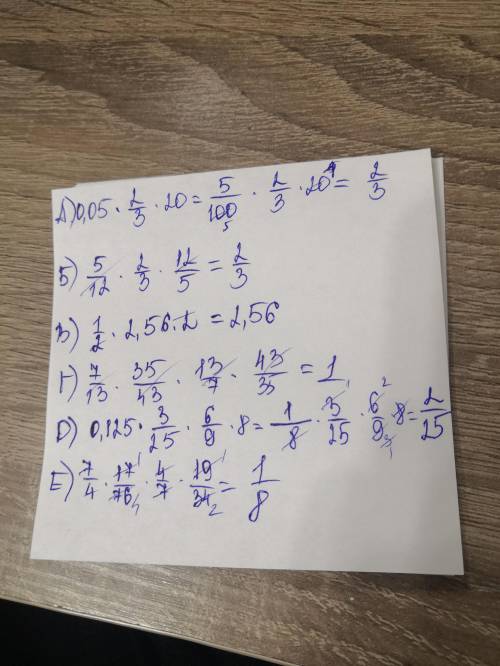 А) 0,05 · 2/3 · 20 = 5/100 5 · 2/3 · 20 = 2/3
Б) 5/12 · 2/3 · 12/5 = 2/3
В) 1/2 · 2,56 · 2 = 2,56
Г) 7/13 · 35/43 · 13/7 · 43/35 = 1
D) 0,125 · 3/25 · 6/9 · 8 = 1/8 · 3/25 · 6/9 · 8 = 2/25
Е) 7/4 · 17/76 · 4/7 · 19/34 = 1/8